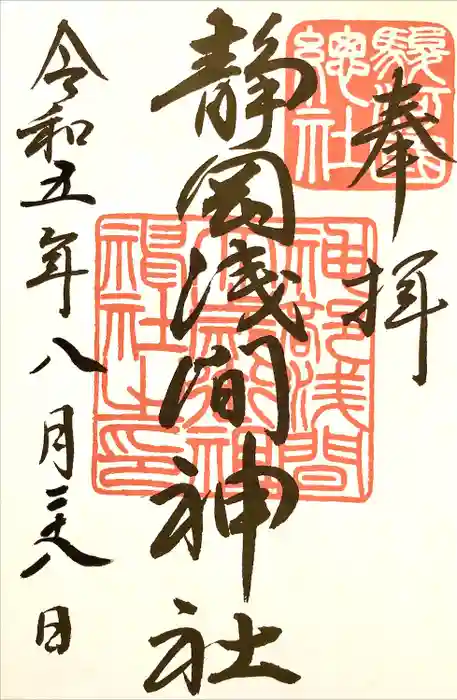 奉拝
駿河國
總社
静岡浅間神社
神部浅間
神社之印
令和五年八月二十八日